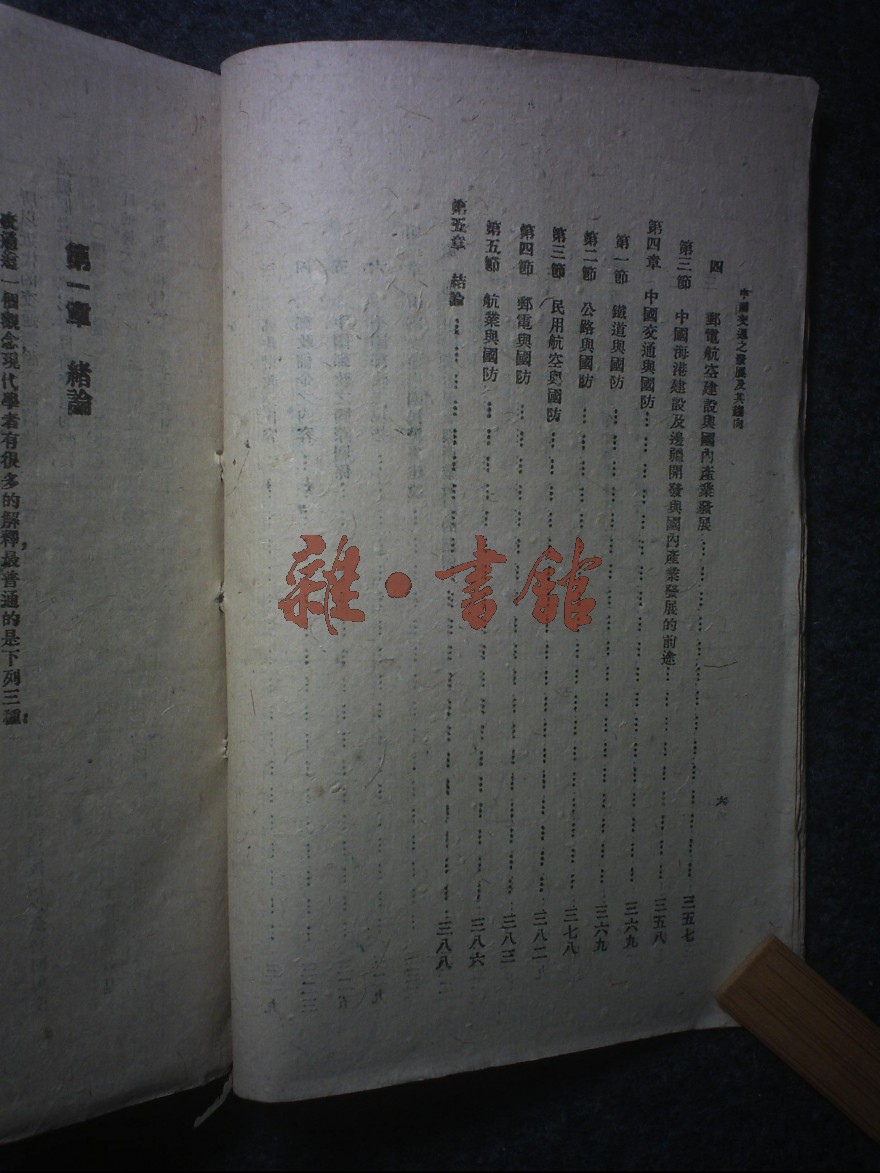 中國交通之發展及其趨向
六
四 郵電航空建設與國內產業發展……三五七
第三節 中國海港建設及邊疆開發與國內產業發展的前途……三五八
第四章 中國交通與國防……三六九
第一節 鐵道與國防……三六九
第二節 公路與國防……三七八
第三節 民用航空與國防……三八二
第四節 郵電與國防……三八三
第五節 航業與國防……三八六
第五章 結論……三八八
第一章 緒論
交通這一個觀念現代學者有很多的解釋，最普通的是下列三種：
雜·書館